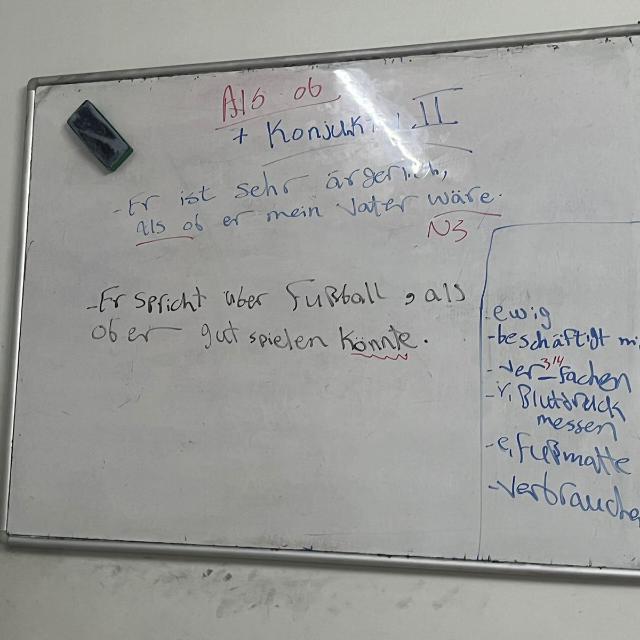 Als ob
+ Konjukt II
- Er ist sehr ärgerlich,
als ob er mein Vater wäre.
NS
- Er spricht über Fußball, als
ob er gut spielen könnte.
- ewig
- beschäftigt mi
- ver 3/4 fachen
- r, Blutdruck
messen
- e, Fußmatte
- verbrauche